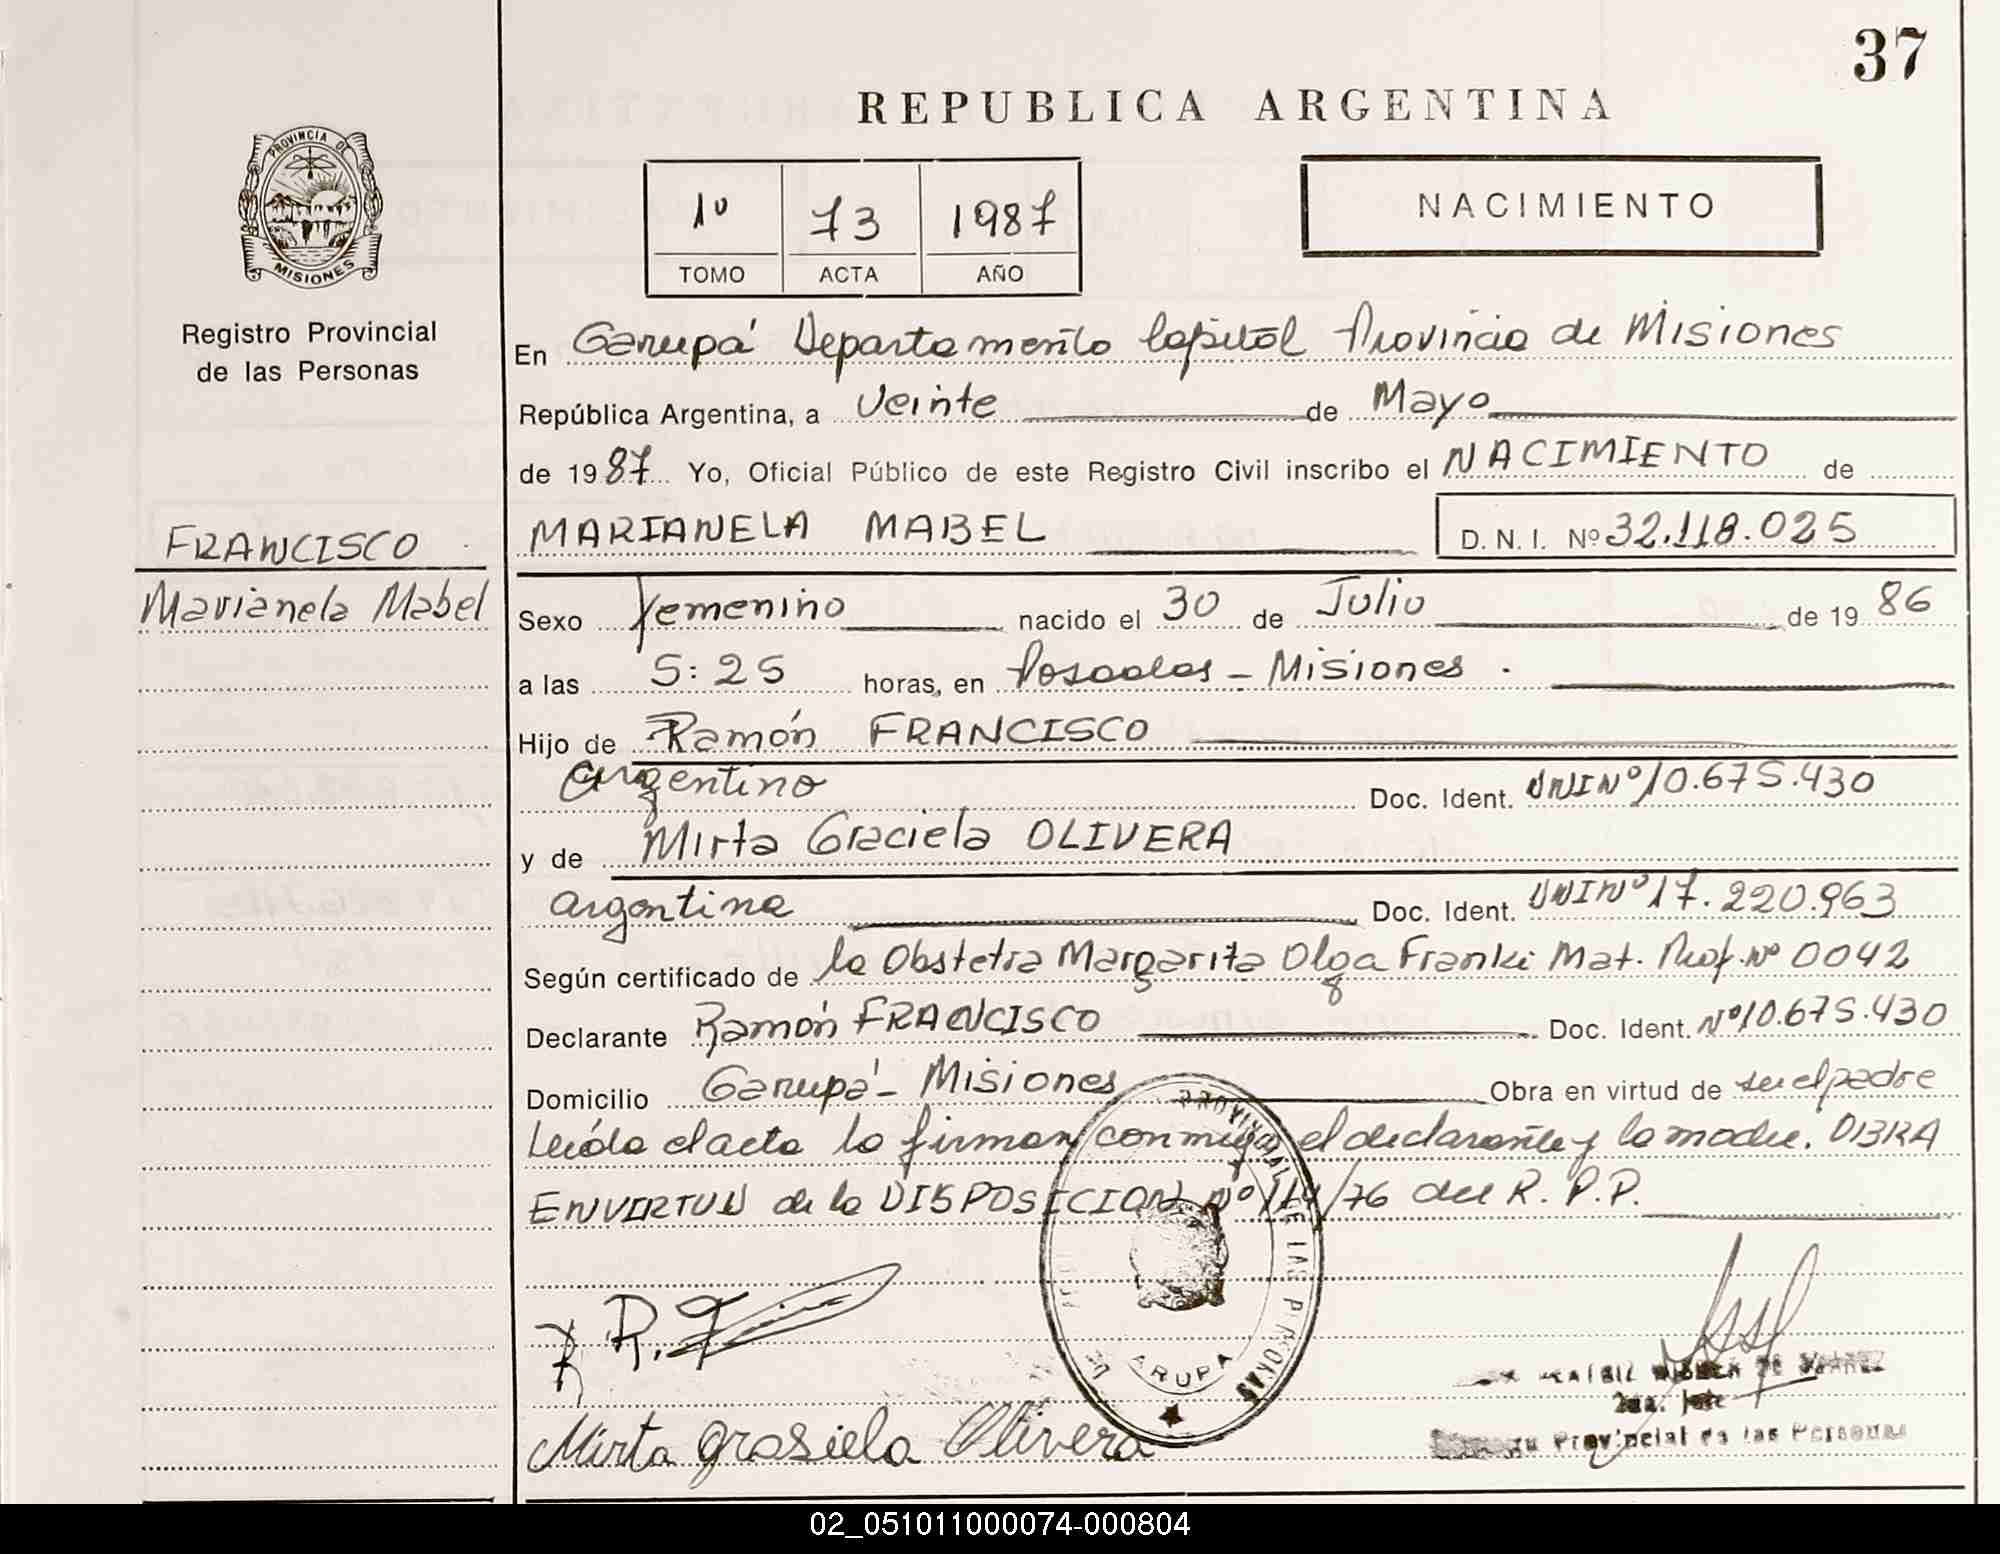 37
REPUBLICA ARGENTINA
PROVINCIA DE
MISIONES
Registro Provincial
de las Personas
1º 73 1987
TOMO ACTA AÑO
NACIMIENTO
En Garupá Departamento Capital Provincia de Misiones
República Argentina, a Veinte de Mayo
de 1987 Yo, Oficial Público de este Registro Civil inscribo el NACIMIENTO de
FRANCISCO
Marianela Mabel
MARIANELA MABEL D. N. I. Nº 32.118.025
Sexo Femenino nacido el 30 de Julio de 1986
a las 5:25 horas, en Posadas - Misiones.
Hijo de Ramón FRANCISCO
argentino Doc. Ident. DNI Nº 10.675.430
y de Mirta Graciela OLIVERA
argentina Doc. Ident. DNI Nº 17.220.963
Según certificado de la Obstetra Margarita Olga Franki Mat. Prof. Nº 0042
Declarante Ramón FRANCISCO Doc. Ident. Nº 10.675.430
Domicilio Garupá - Misiones Obra en virtud de ser el padre
Leída el acta la firman conmigo el declarante y la madre. OBRA
EN VIRTUD de la DISPOSICION Nº 114/76 del R. P. P.
PROVINCIAL DE LAS PERSONAS
ARUPA
R. F
Mirta grasiela Olivera
Jefe
Provincial de las Personas
02_051011000074-000804